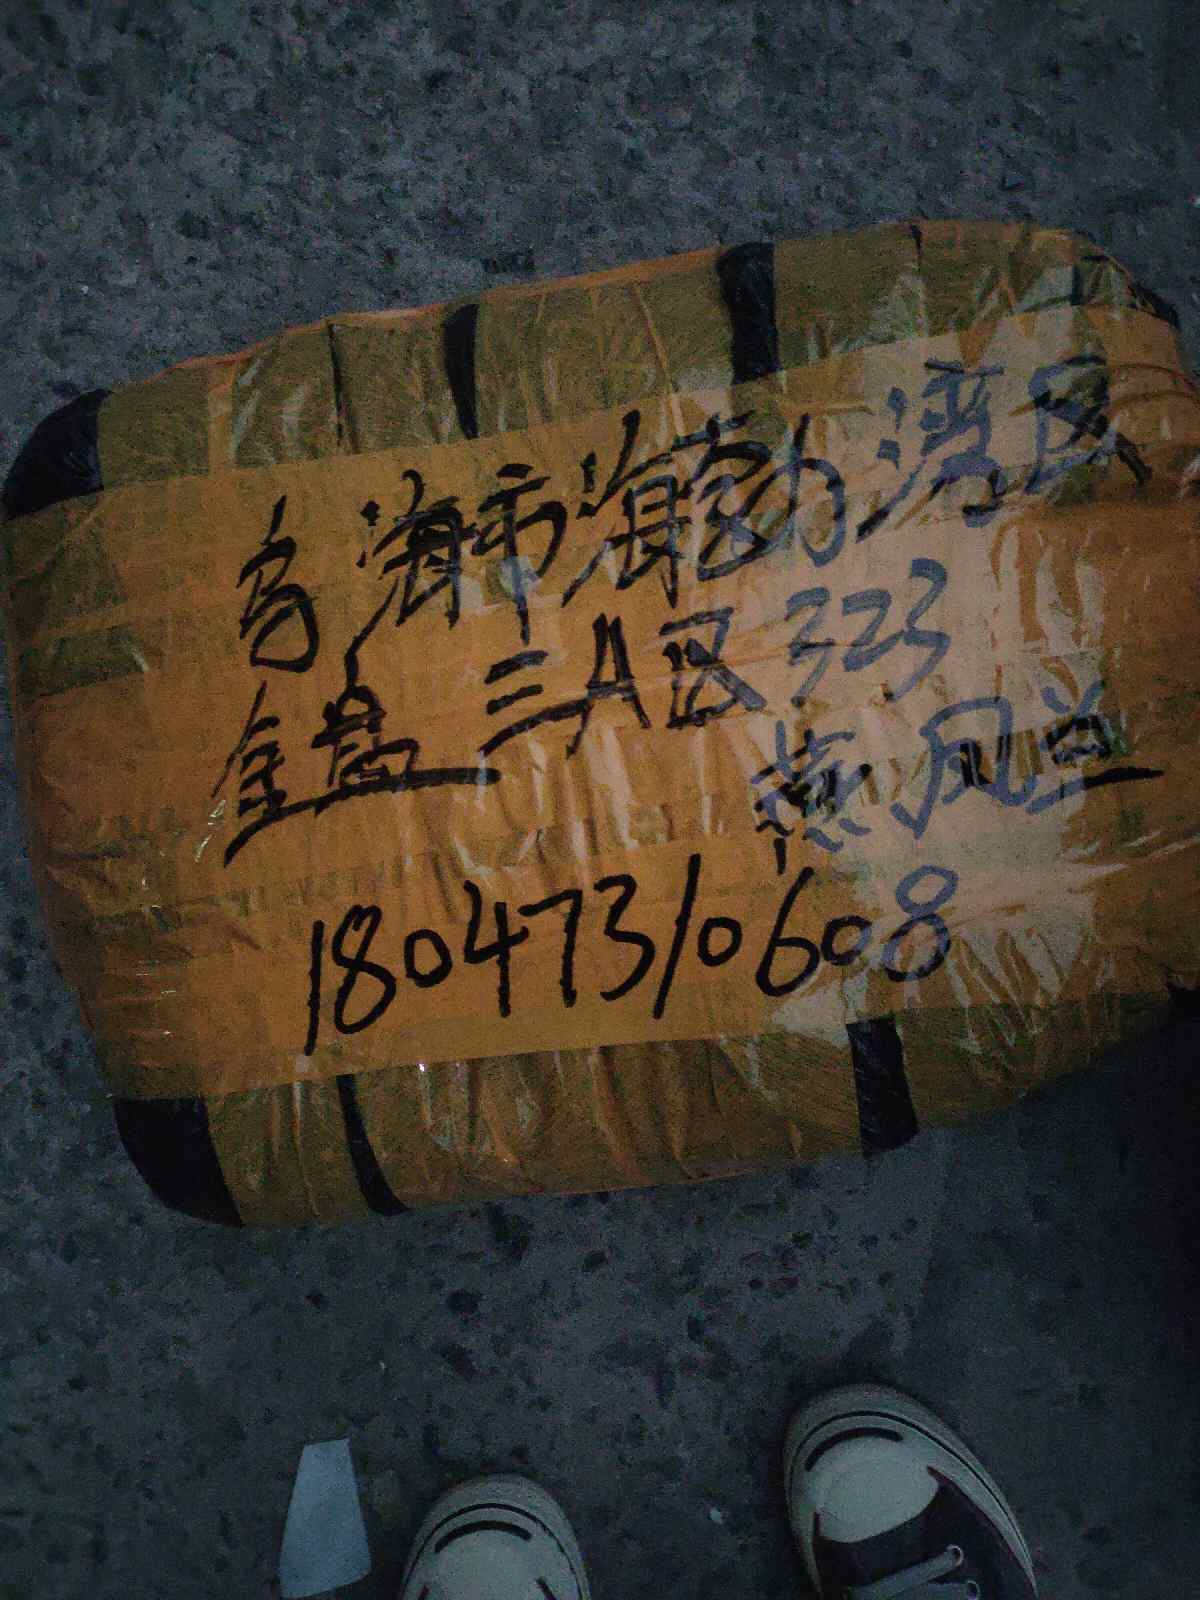 乌海市海勃湾区
金昌三A区323
燕凤兰
18047310608